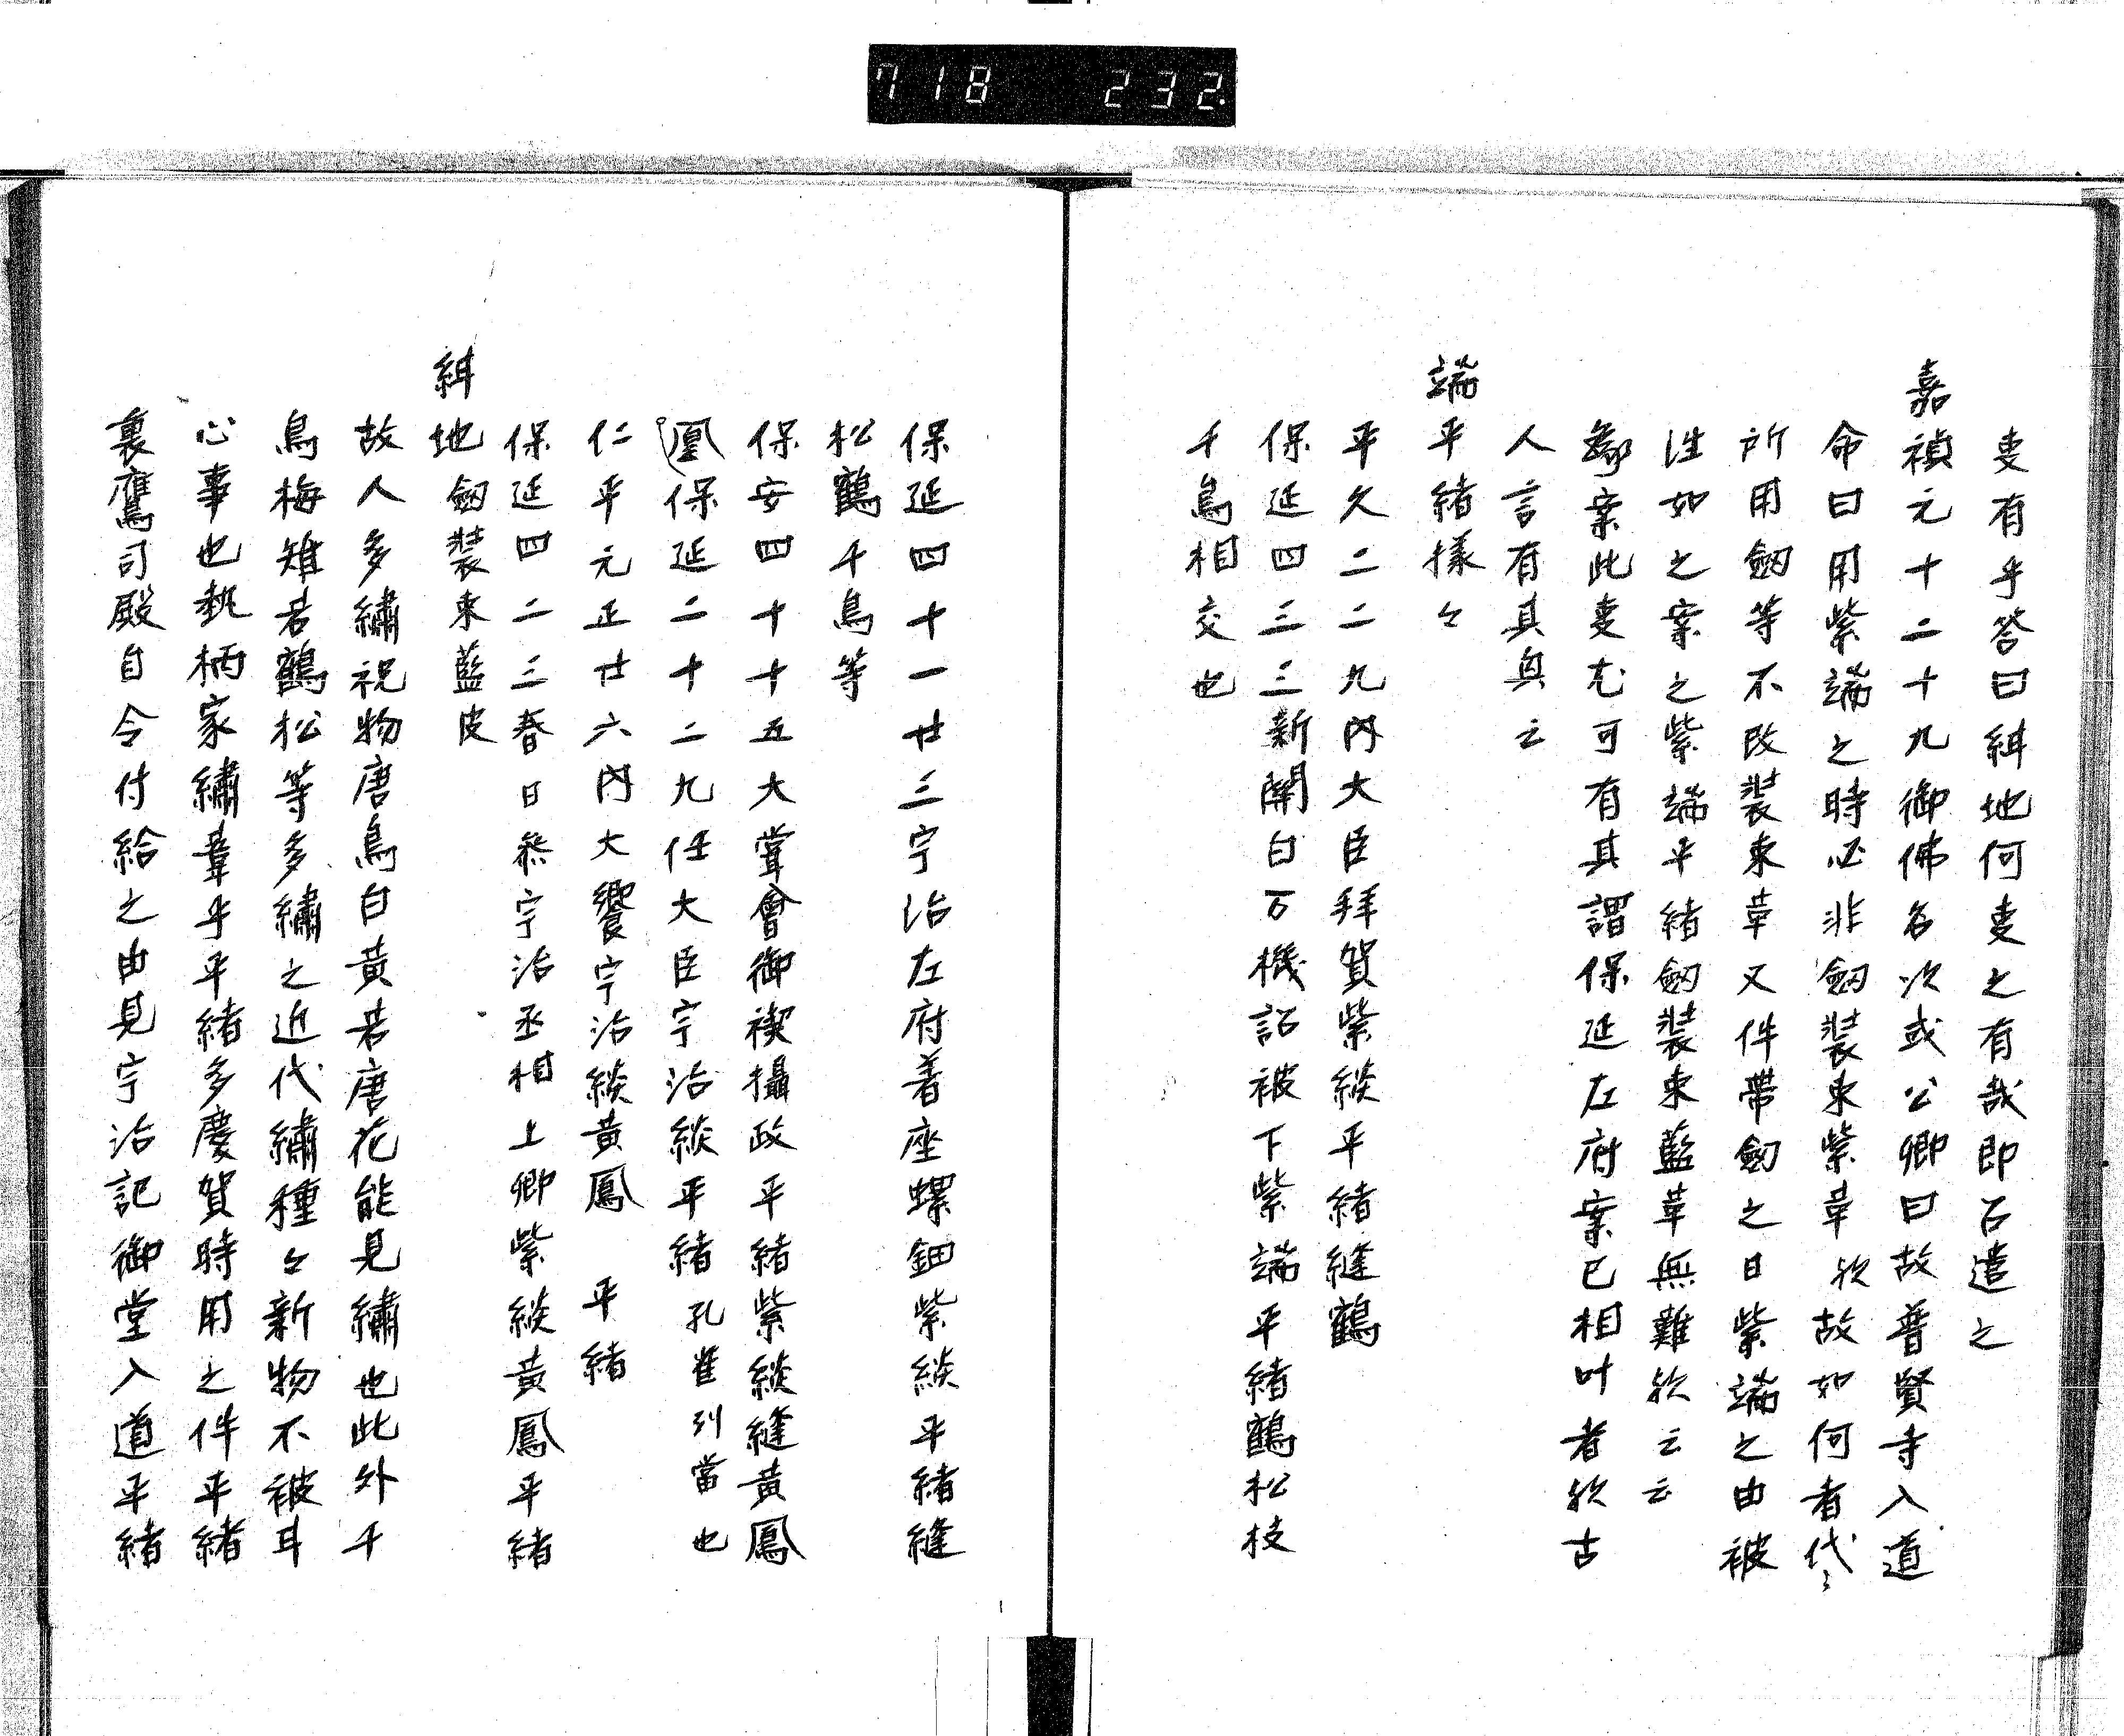 718 232.
叓有乎答曰緷地何叓之有哉即召遣之
嘉禎元十二十九御佛名次或公卿曰故普賢寺入道
命曰用紫端之時必非劔装束紫革欤故如何者代〻
所用劔等不改装束革又件帯劔之日紫端之由被
注如之案之紫端平緒劔装束藍革無難欤云云
案此叓尤可有其謂保延左府案已相叶者欤古
人言有其興云
端平緒様々
平久二二九内大臣拜賀紫緂平緒縫鶴
保延四三三新関白万機詔被下紫端平緒鶴松枝
千鳥相交也
保延四十一廿三宇治左府着座螺鈿紫緂平緒縫
松鶴千鳥等
保安四十十五大嘗會御禊攝政平緒紫緂縫黄鳳
凰保延二十二九任大臣宇治緂平緒孔雀引當也
仁平元正廿六内大饗宇治緂黄鳳 平緒
保延四二三春日祭宇治丞相上卿紫緂黄鳳平緒
緷地劔装束藍皮
故人多繡祝物唐鳥白黄若唐花能見繡也此外千
鳥梅雉若鶴松等多繡之近代繡種々新物不被甘
心事也執柄家繡葦手平緒多慶賀時用之件平緒
裏鷹司殿自令付給之由見宇治記御堂入道平緒